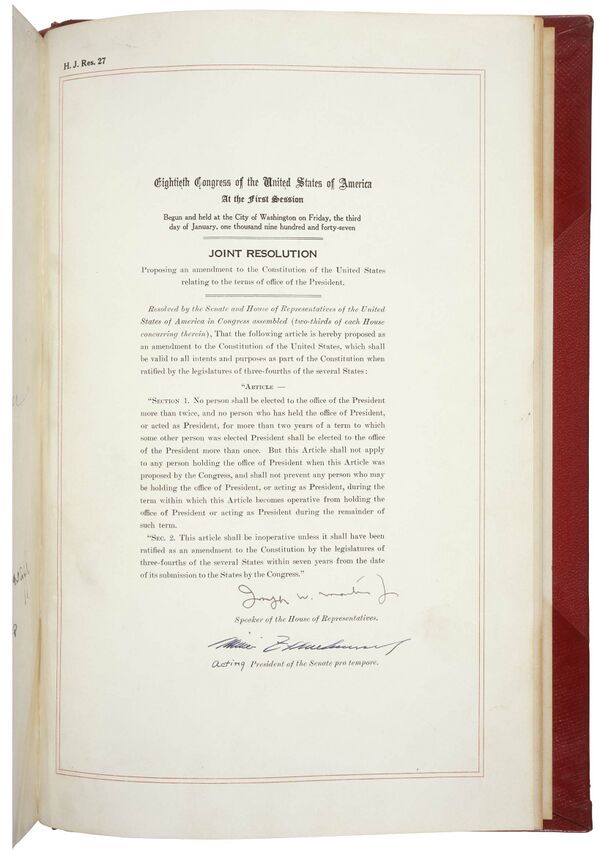 H. J. Res. 27
Eightieth Congress of the United States of America
At the First Session
Begun and held at the City of Washington on Friday, the third
day of January, one thousand nine hundred and forty-seven
JOINT RESOLUTION
Proposing an amendment to the Constitution of the United States
relating to the terms of office of the President.
Resolved by the Senate and House of Representatives of the United
States of America in Congress assembled (two-thirds of each House
concurring therein), That the following article is hereby proposed as
an amendment to the Constitution of the United States, which shall
be valid to all intents and purposes as part of the Constitution when
ratified by the legislatures of three-fourths of the several States:
"Article —
"Section 1. No person shall be elected to the office of the President
more than twice, and no person who has held the office of President,
or acted as President, for more than two years of a term to which
some other person was elected President shall be elected to the office
of the President more than once. But this Article shall not apply
to any person holding the office of President when this Article was
proposed by the Congress, and shall not prevent any person who may
be holding the office of President, or acting as President, during the
term within which this Article becomes operative from holding the
office of President or acting as President during the remainder of
such term.
"Sec. 2. This article shall be inoperative unless it shall have been
ratified as an amendment to the Constitution by the legislatures of
three-fourths of the several States within seven years from the date
of its submission to the States by the Congress."
Joseph W. Martin Jr
Speaker of the House of Representatives.
acting President of the Senate pro tempore.